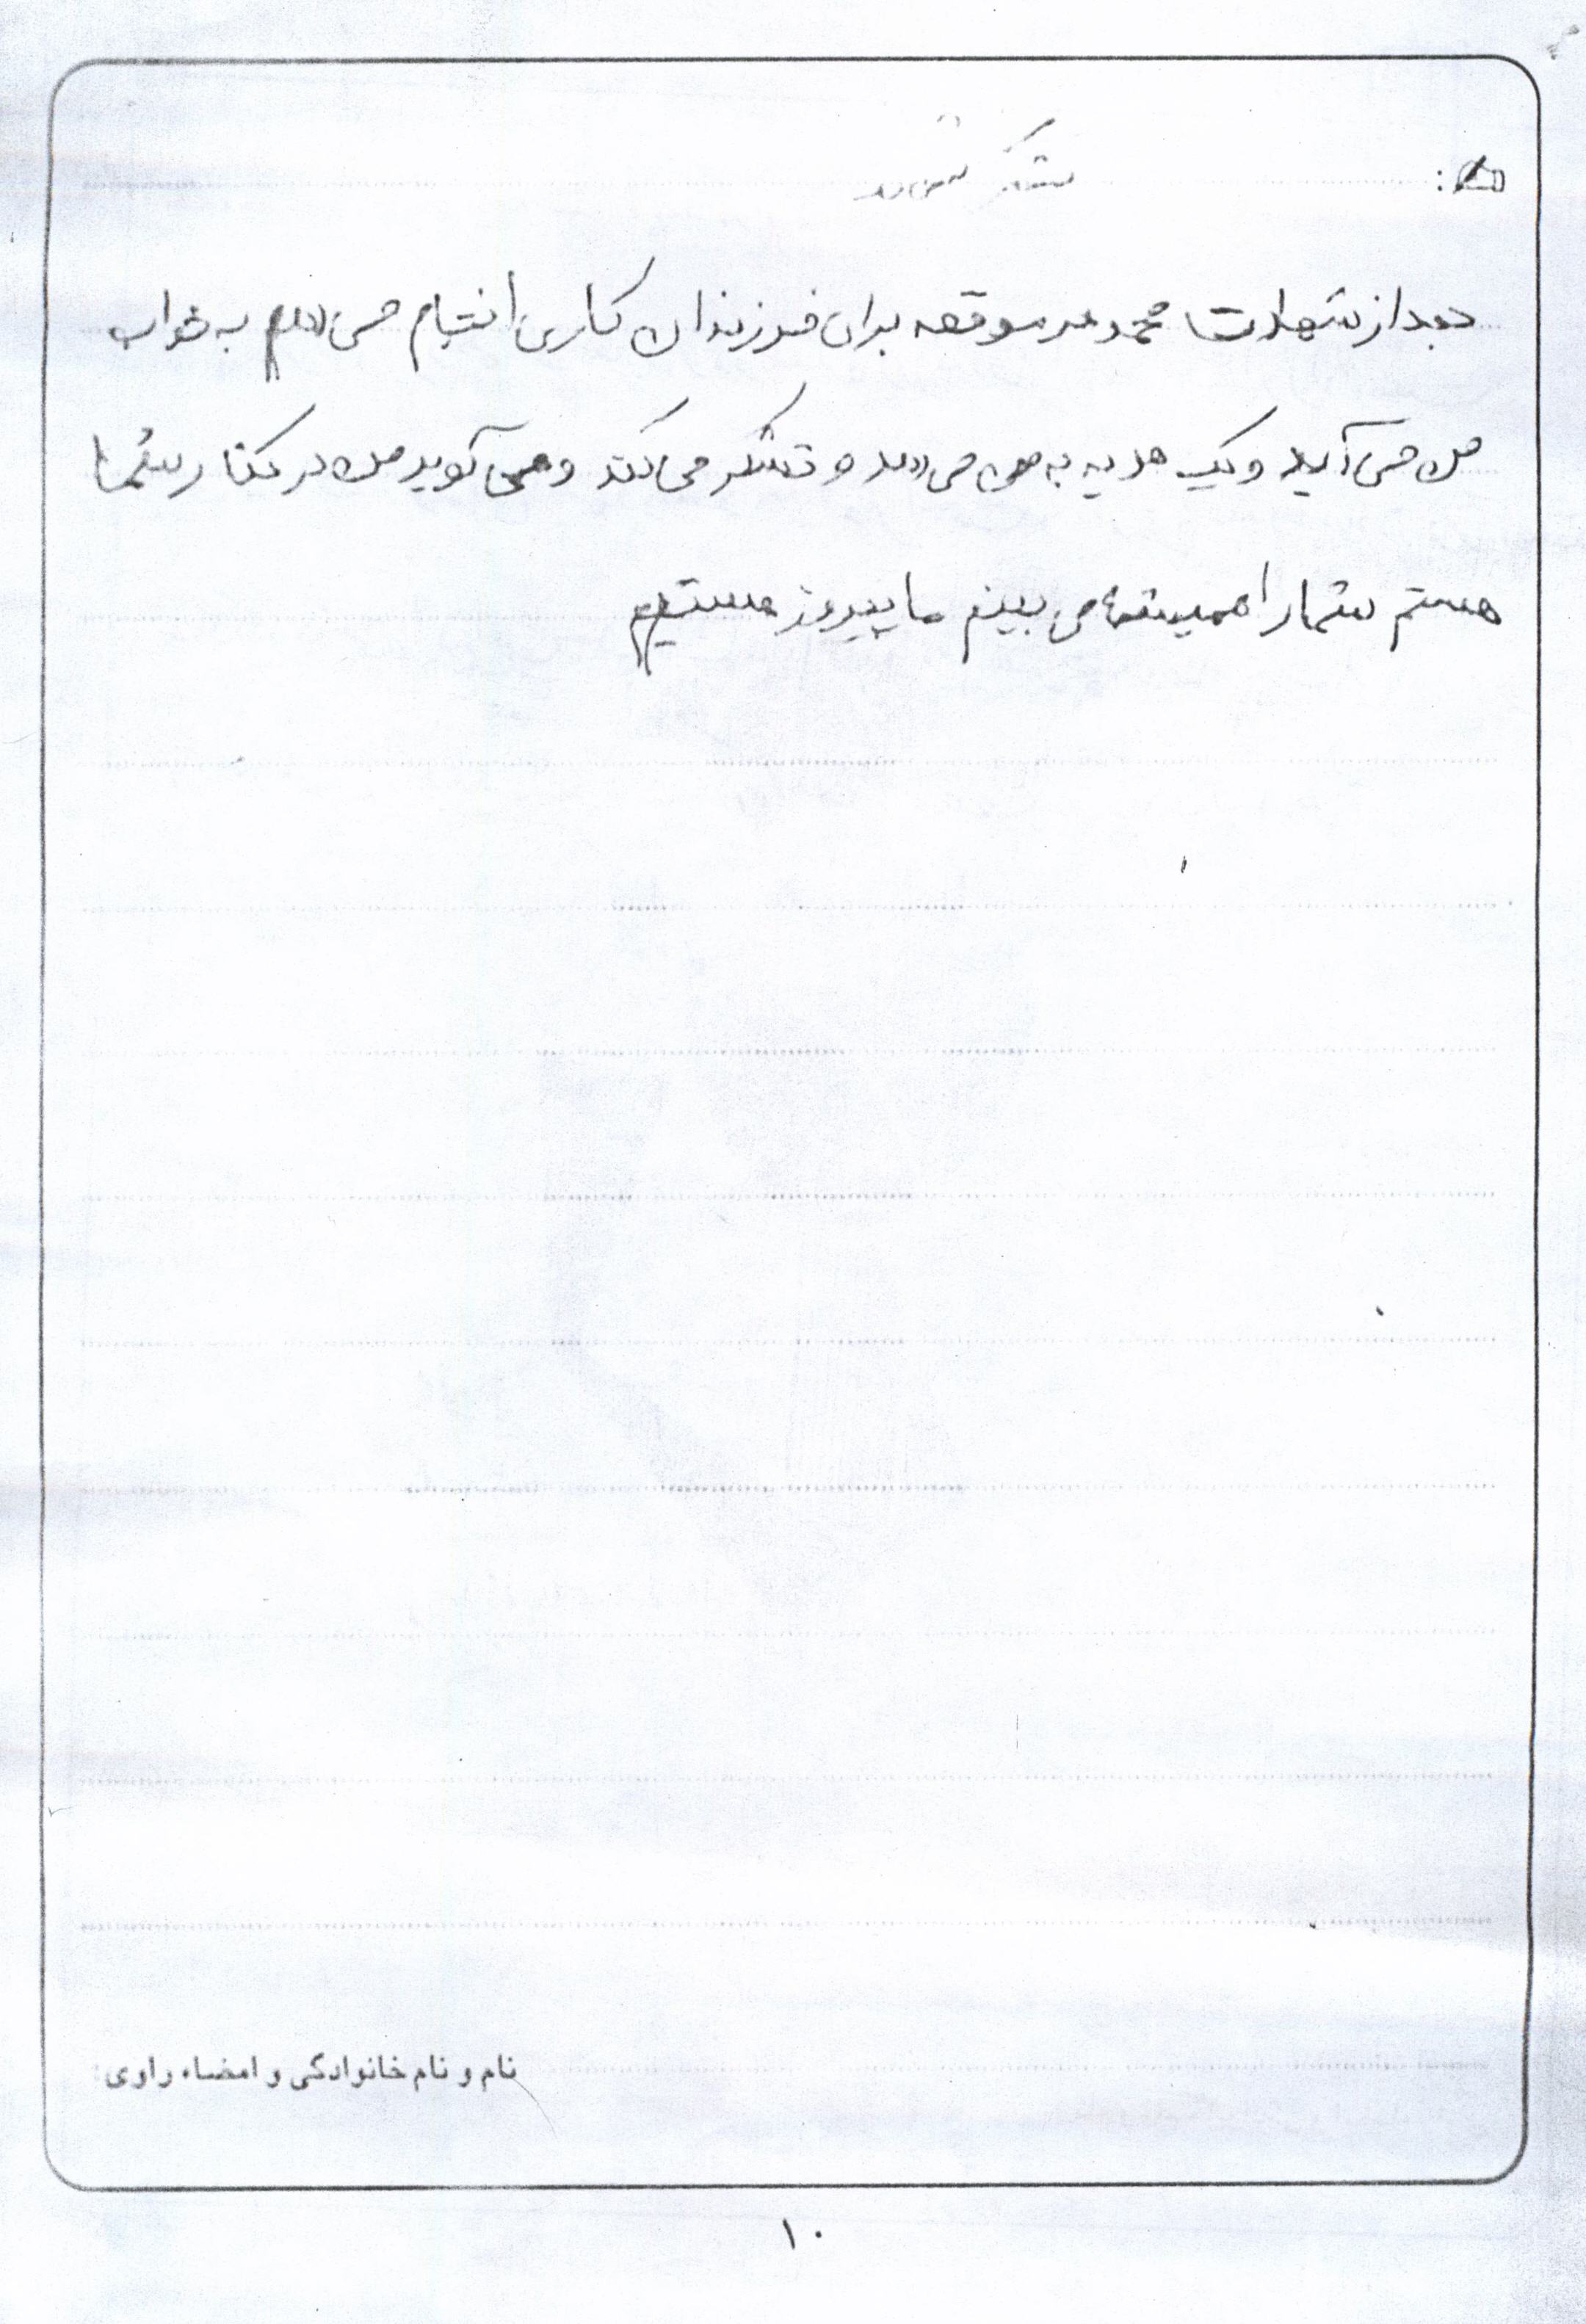 تشکر شهید
بعد از شهادت محمود هر موقعه برای فرزندان کاری انجام می دهم به خواب
من می آید و یک هدیه به من می دهد و تشکر می کند و می گوید من در کنار شما
هستم شما را همیشه می بینم ما پیروز هستیم
نام و نام خانوادگی و امضاء راوی:
۱۰